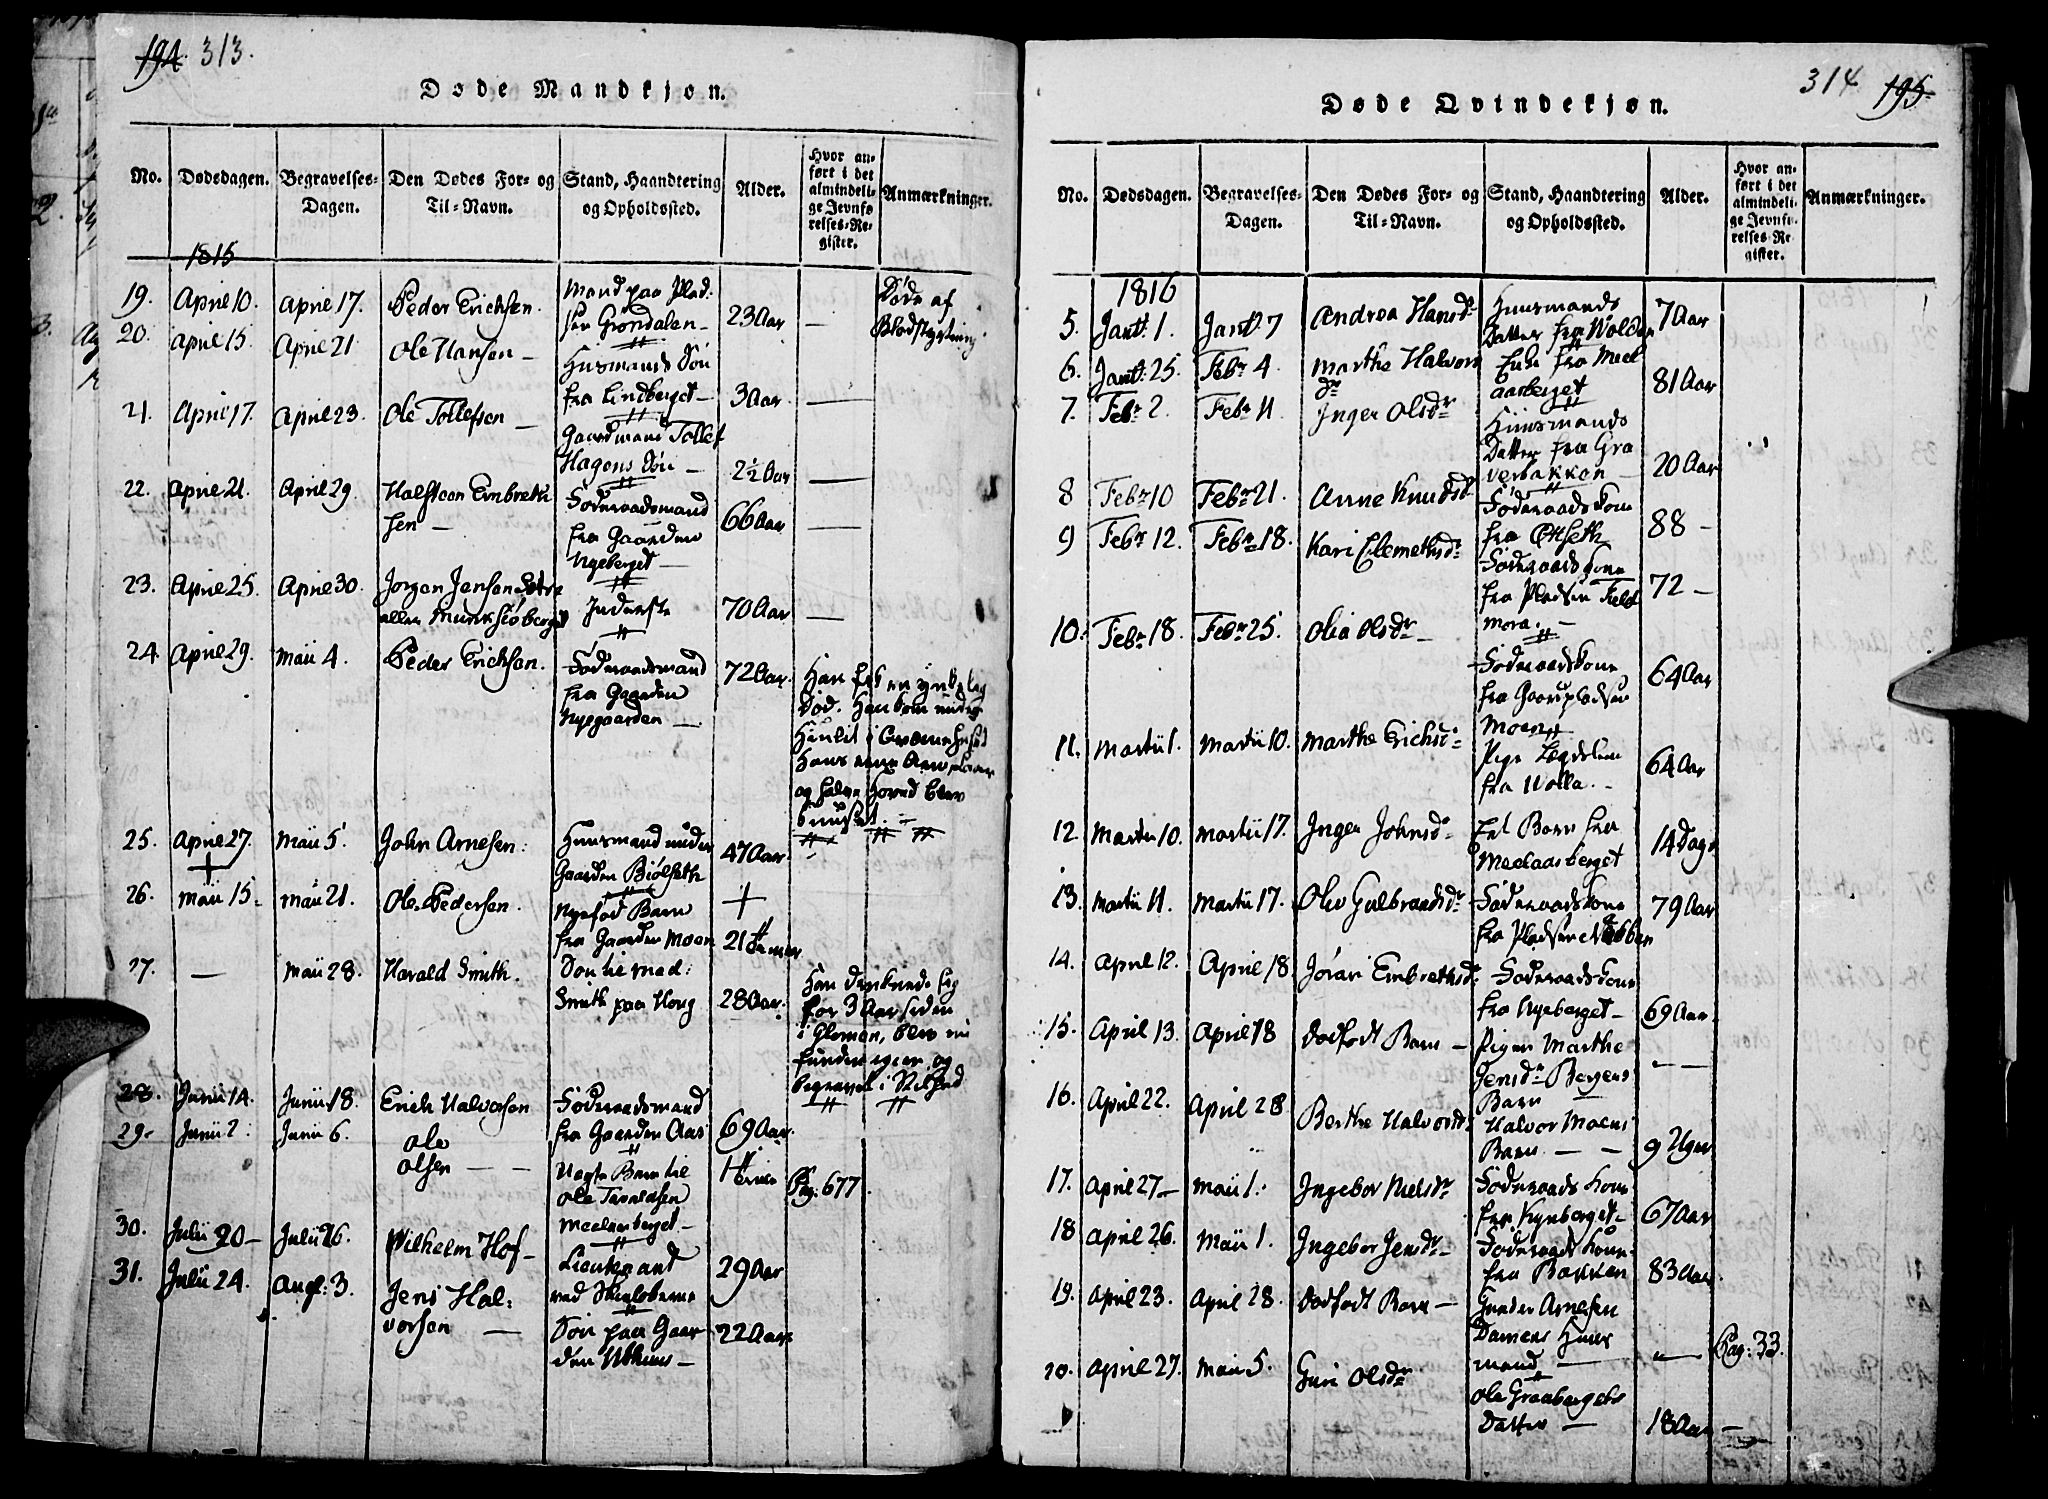 194. 313.
Døde Mandkjøn.
No.
Dødsdagen.
Begravelses-
Dagen.
Den Dødes For- og
Til-Navn.
Stand, Haandtering
og Opholdssted.
Alder.
Hvor an-
ført i det
almindeli-
ge Jevnfø
relses-Re-
gister.
Anmærkninger.
1815
19. April 10. April 17. Peder Erichsen. Mand paa Plad:
sen Grøndalen 23 Aar —
Døde af
Blodstyrtning
20. April 15. April 21 Ole Hansen — Husmands Søn
fra Lindberget — 3 Aar —
21. April 17. April 23. Ole Tollefsen — Gaardmand Tollef
Hagens Søn — 2½ Aar —
22. April 21. April 29. Halfstoen Embreth
sen — Føderaadsmand
fra Gaarden
Nyeberget — 66 Aar —
23. April 25. April 30. Jørgen Jensen
eller Inderste 70 Aar —
24. April 29. Maii 4. Peder Erichsen. Føderaadsmand
fra Gaarden
Nyegaarden — 72 Aar.
Han fik en ynkelig
Død. Han kom under
Hans ene Arm
og halve Hoved blev
knuset. —
25. April 27. Maii 5. John Arnesen: Huusmand under
Gaarden Biølseth 47 Aar.
26. Maii 15. Maii 21. Ole Pedersen. Nyefød Barn
fra Gaarden Moen 21 Timer
27. — Maii 28. Harald Smith. Søn til Mad:
Smith paa Houg 28 Aar.
Han druknede sig
for 3 Aar siden
i Glomen, blev nu
funden igien og
begravet i
28. Junii 14. Junii 18. Erich Halvorsen Føderaadsmand
fra Gaarden Aas 69 Aar.
29. Junii 2: Junii 6. Ole
Olsen — — Uægte Barn til
Ole
Meelaasberget — 1 Time Pag. 677.
30. Julii 20 — Julii 26. Wilhelm Hof — Lieutenant
ved 29 Aar
31. Julii 24. Aug: 3. Jens Hal:
vorsen — Søn paa Gaar
den 22 Aar.
314 195.
Døde Qvindekjøn.
No.
Dødsdagen.
Begravelses-
Dagen.
Den Dødes For- og
Til-Navn.
Stand, Haandtering
og Opholdssted.
Alder.
Hvor an-
ført i det
almindeli-
ge Jevnfø-
relses-Re-
gister.
Anmærkninger.
1816
5. Janu: 1. Janu: 7 Andrea Hansdr Huusmands
Datter fra Wolden 7 Aar
6. Janu: 25. Febr 4. Marthe Halvors
dr Enke fra Meel
aasberget 81 Aar
7. Febr 2. Febr 11. Inger Olsdr Huusmands
Datter fra Gra
verbakken — 20 Aar
8 Febr 10 Febr 21. Anne Knudsdr Føderaadskone
fra Otthseth 88 —
9 Febr 12. Febr 18. Kari Clemethsdr Føderaadskone
fra Pladsen Feld
mora. — 72 —
10. Febr 18. Febr 25. Olia Olsdr — Føderaadskone
fra
Moen 64 Aar
11. Martii 1. Martii 10. Marthe Erichsdr Pige Lægdslem
fra Wolla. — 64 Aar
12. Martii 10. Martii 17. Inger Johnsdr Eet Barn fra
Meelaasberget 14 Dage
13. Martii 11. Martii 17. Olea Gulbrandsdr Føderaadskone
fra Pladsen 79 Aar
14. April 12. April 18. Jøran Embrethsdr Føderaadskone
fra Nyeberget — 69 Aar
15. April 13. April 18 Dødfødt Barn — Pigen Marthe
Jensdr Bergens
Barn — —
16. April 22. April 28 Berthe Halvorsdr Halvor Moens
Barn — — 9 Uger
17. April 27 — Maii 1. Ingebor Nielsdr Føderaads Kone
fra Kynberget — 67 Aar
18 April 26. Maii 1. Ingebor Jensdr — Føderaads Kone
fra Bakken 83 Aar.
19. April 23. April 28. Dødfødt Barn — Gunder Arnesen
Damens Huus
mand — — Pag: 33.
20. April 27. Maii 5. Guri Olsdr Ole Graabergets
Datter — 18 Aar —